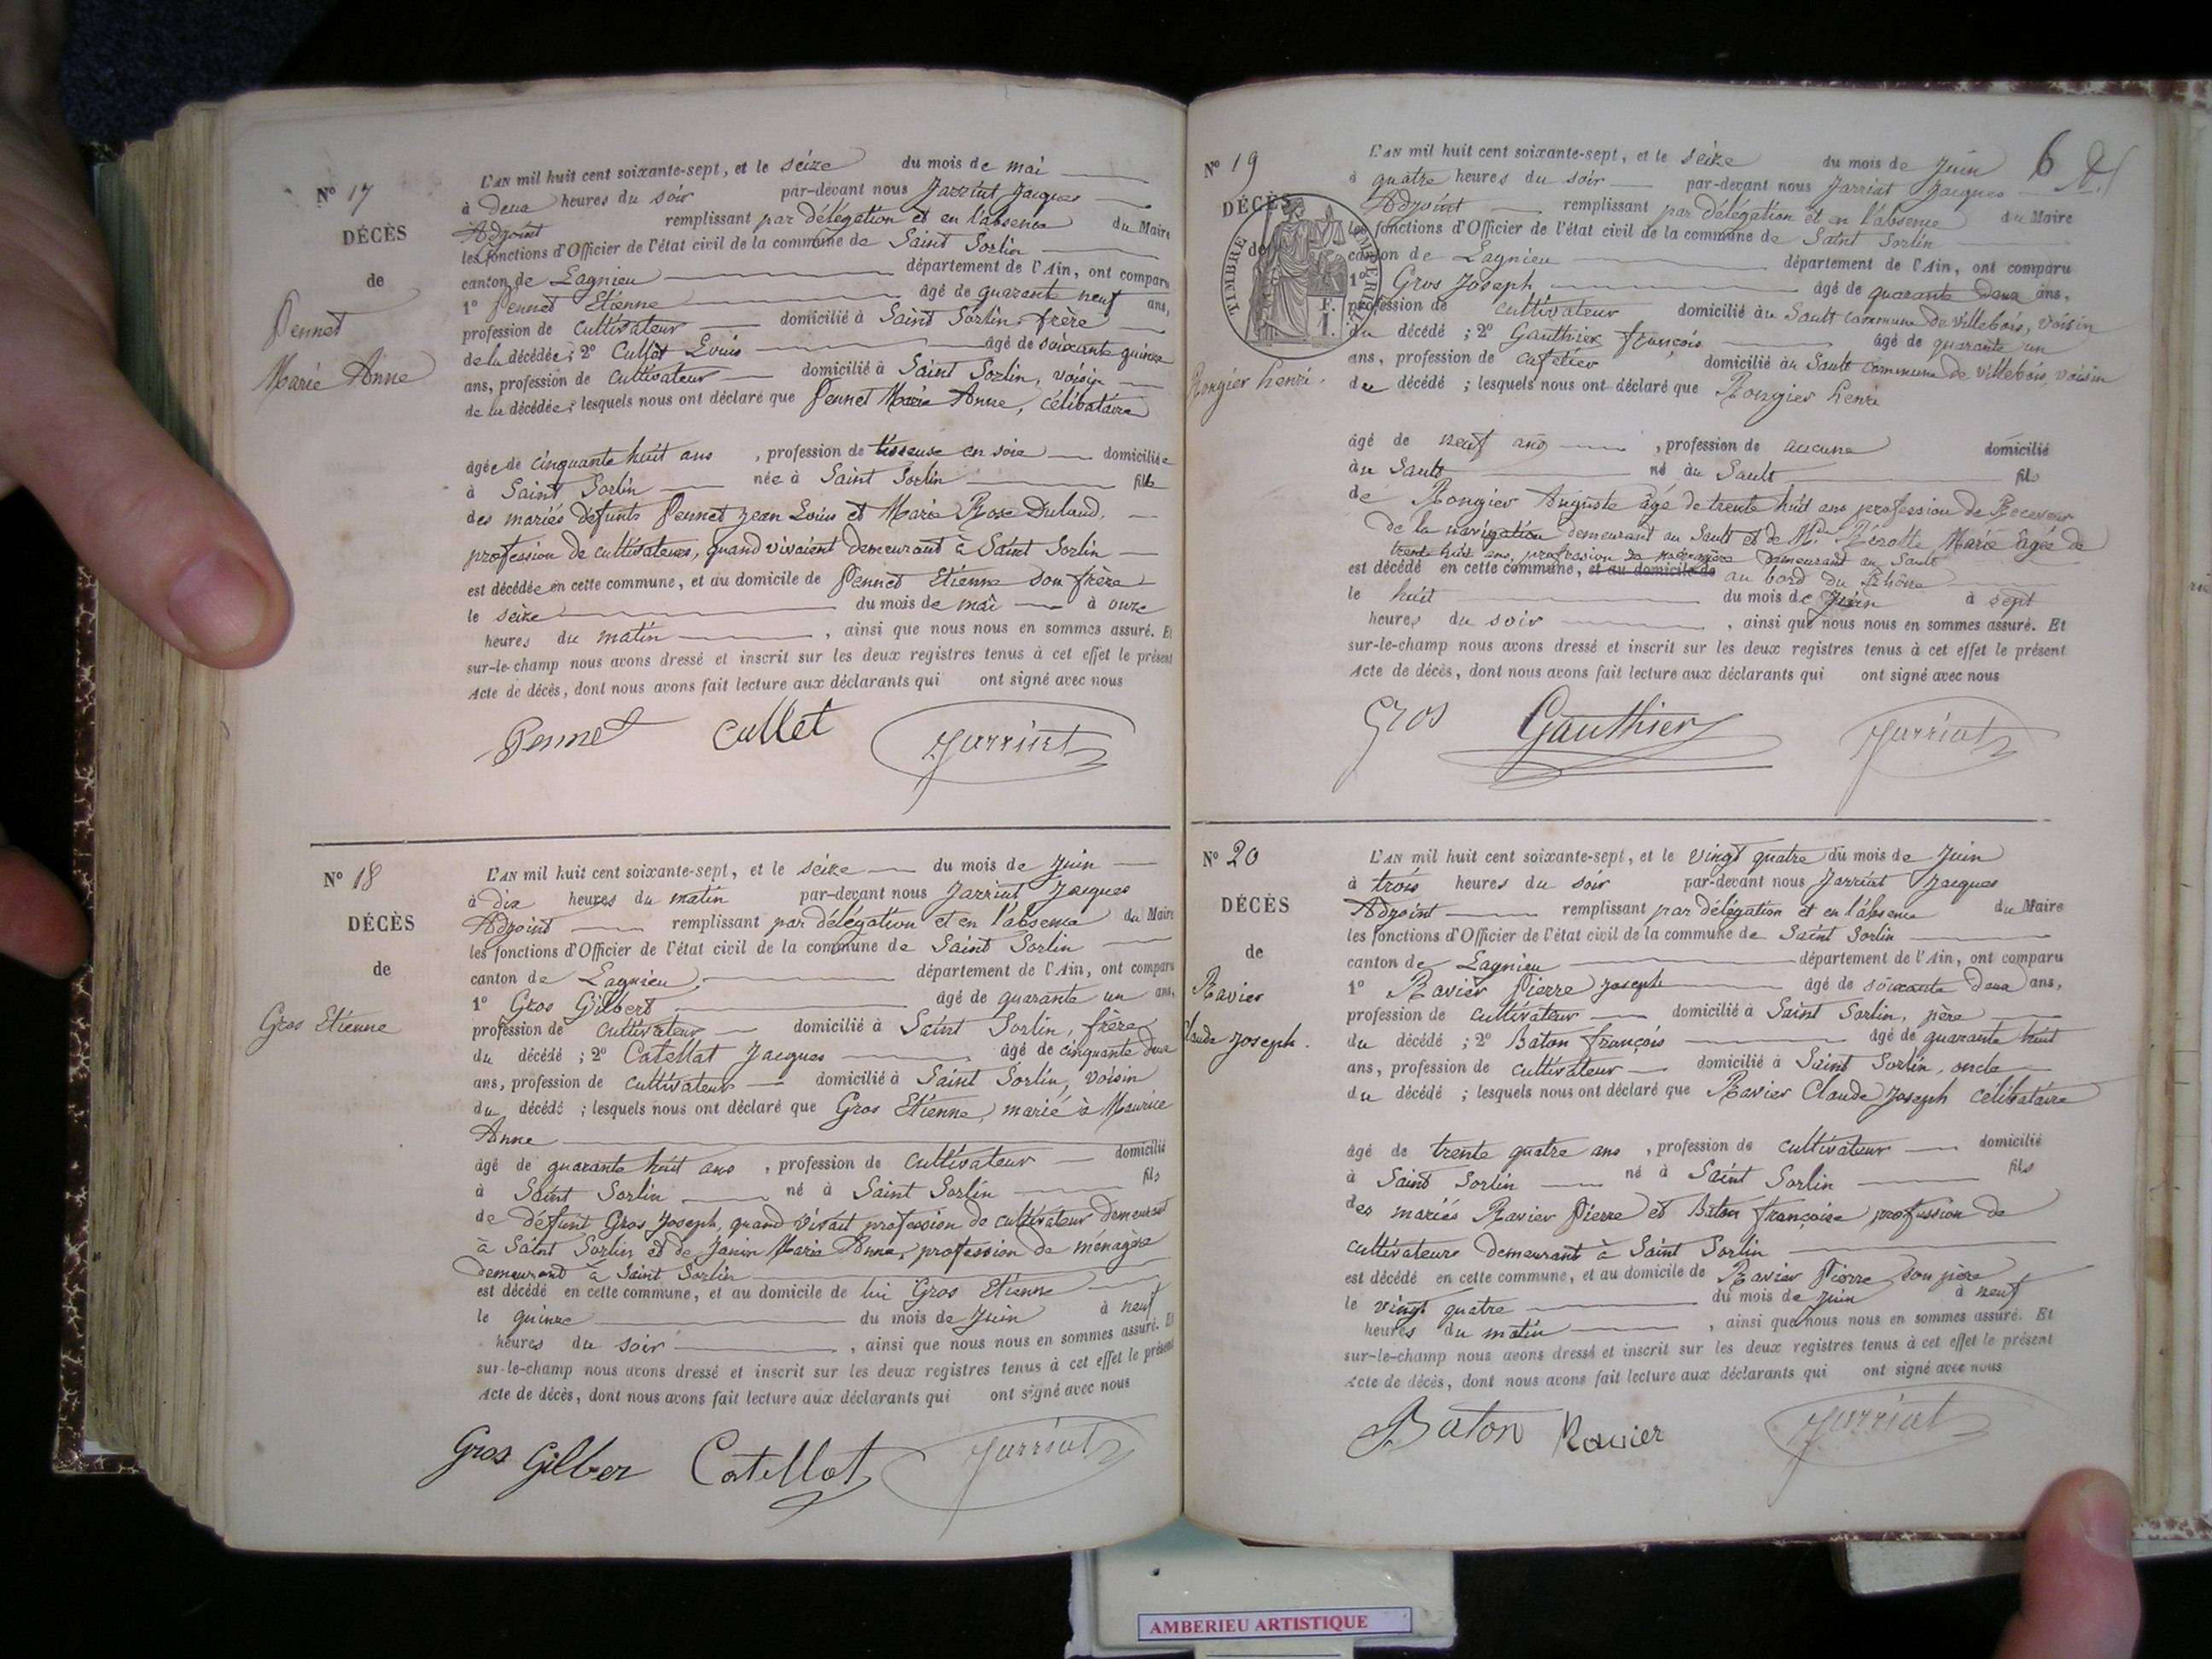 N° 17
DÉCÈS
de
Pennet
Marie Anne
L'AN mil huit cent soixante-sept, et le seize du mois de mai
à deux heures du soir par-devant nous Jarriat Jacques
Adjoint remplissant par délégation et en l'absence du Maire
les fonctions d'Officier de l'état civil de la commune de Saint Sorlin
canton de Lagnieu département de l'Ain, ont comparu
1° Pennet Etienne âgé de quarante neuf ans,
profession de cultivateur domicilié à Saint Sorlin, frère
de la décédée; 2° Cullet Louis âgé de soixante quinze
ans, profession de cultivateur domicilié à Saint Sorlin, voisin
de la décédée; lesquels nous ont déclaré que Pennet Marie Anne, célibataire
âgée de cinquante huit ans, profession de tisseuse en soie domiciliée
à Saint Sorlin née à Saint Sorlin fille
des mariés défunts Pennet Jean Louis et Marie Rose Dulaud,
profession de cultivateurs, quand vivaient demeurant à Saint Sorlin
est décédée en cette commune, et au domicile de Pennet Etienne son frère
le seize du mois de mai à onze
heures du matin, ainsi que nous nous en sommes assuré. Et
sur-le-champ nous avons dressé et inscrit sur les deux registres tenus à cet effet le présent
Acte de décès, dont nous avons fait lecture aux déclarants qui ont signé avec nous
Pennet Cullet Jarriat
N° 18
DÉCÈS
de
Gros Etienne
L'AN mil huit cent soixante-sept, et le seize du mois de Juin
à dix heures du matin par-devant nous Jarriat Jacques
Adjoint remplissant par délégation et en l'absence du Maire
les fonctions d'Officier de l'état civil de la commune de Saint Sorlin
canton de Lagnieu, département de l'Ain, ont comparu
1° Gros Gilbert âgé de quarante un ans,
profession de cultivateur domicilié à Saint Sorlin, frère
du décédé; 2° Catellat Jacques âgé de cinquante deux
ans, profession de cultivateur domicilié à Saint Sorlin, voisin
du décédé; lesquels nous ont déclaré que Gros Etienne, marié à Maurice
Anne
âgé de quarante huit ans, profession de cultivateur domicilié
à Saint Sorlin né à Saint Sorlin fils
de défunt Gros Joseph, quand vivait profession de cultivateur demeurant
à Saint Sorlin et de Janin Marie Anne, profession de ménagère
demeurant à Saint Sorlin
est décédé en cette commune, et au domicile de lui Gros Etienne
le quinze du mois de Juin à neuf
heures du soir, ainsi que nous nous en sommes assuré. Et
sur-le-champ nous avons dressé et inscrit sur les deux registres tenus à cet effet le présent
Acte de décès, dont nous avons fait lecture aux déclarants qui ont signé avec nous
Gros Gilber Catellat Jarriat
6
N° 19
DÉCÈS
de
TIMBRE IMPÉRIAL
1 F.
Rongier henri.
L'AN mil huit cent soixante-sept, et le seize du mois de Juin
à quatre heures du soir par-devant nous Jarriat Jacques
Adjoint remplissant par délégation et en l'absence du Maire
les fonctions d'Officier de l'état civil de la commune de Saint Sorlin
canton de Lagnieu département de l'Ain, ont comparu
1° Gros Joseph âgé de quarante deux ans,
profession de cultivateur domicilié au Sault commune de Villebois, voisin
du décédé; 2° Gauthier françois âgé de quarante un
ans, profession de cafetier domicilié au Sault commune de Villebois, voisin
du décédé; lesquels nous ont déclaré que Rongier henri
âgé de neuf ans, profession de aucune domicilié
au Sault né au Sault fils
de Rongier Auguste âgé de trente huit ans profession de Receveur
de la navigation demeurant au Sault et de Marie âgée de
trente huit ans, profession de ménagère demeurant au Sault
est décédé en cette commune, et au domicile de au bord du Rhône
le huit du mois de Juin à sept
heures du soir, ainsi que nous nous en sommes assuré. Et
sur-le-champ nous avons dressé et inscrit sur les deux registres tenus à cet effet le présent
Acte de décès, dont nous avons fait lecture aux déclarants qui ont signé avec nous
Gros Gauthier Jarriat
N° 20
DÉCÈS
de
Ravier
Claude Joseph.
L'AN mil huit cent soixante-sept, et le vingt quatre du mois de Juin
à trois heures du soir par-devant nous Jarriat Jacques
Adjoint remplissant par délégation et en l'absence du Maire
les fonctions d'Officier de l'état civil de la commune de Saint Sorlin
canton de Lagnieu département de l'Ain, ont comparu
1° Ravier Pierre Joseph âgé de soixante deux ans,
profession de cultivateur domicilié à Saint Sorlin, père
du décédé; 2° Baton françois âgé de quarante huit
ans, profession de cultivateur domicilié à Saint Sorlin, oncle
du décédé; lesquels nous ont déclaré que Ravier Claude Joseph célibataire
âgé de trente quatre ans, profession de cultivateur domicilié
à Saint Sorlin né à Saint Sorlin fils
des mariés Ravier Pierre et Baton françoise profession de
cultivateurs demeurant à Saint Sorlin
est décédé en cette commune, et au domicile de Ravier Pierre son père
le vingt quatre du mois de Juin à neuf
heures du matin, ainsi que nous nous en sommes assuré. Et
sur-le-champ nous avons dressé et inscrit sur les deux registres tenus à cet effet le présent
Acte de décès, dont nous avons fait lecture aux déclarants qui ont signé avec nous
Baton Ravier Jarriat
AMBERIEU ARTISTIQUE